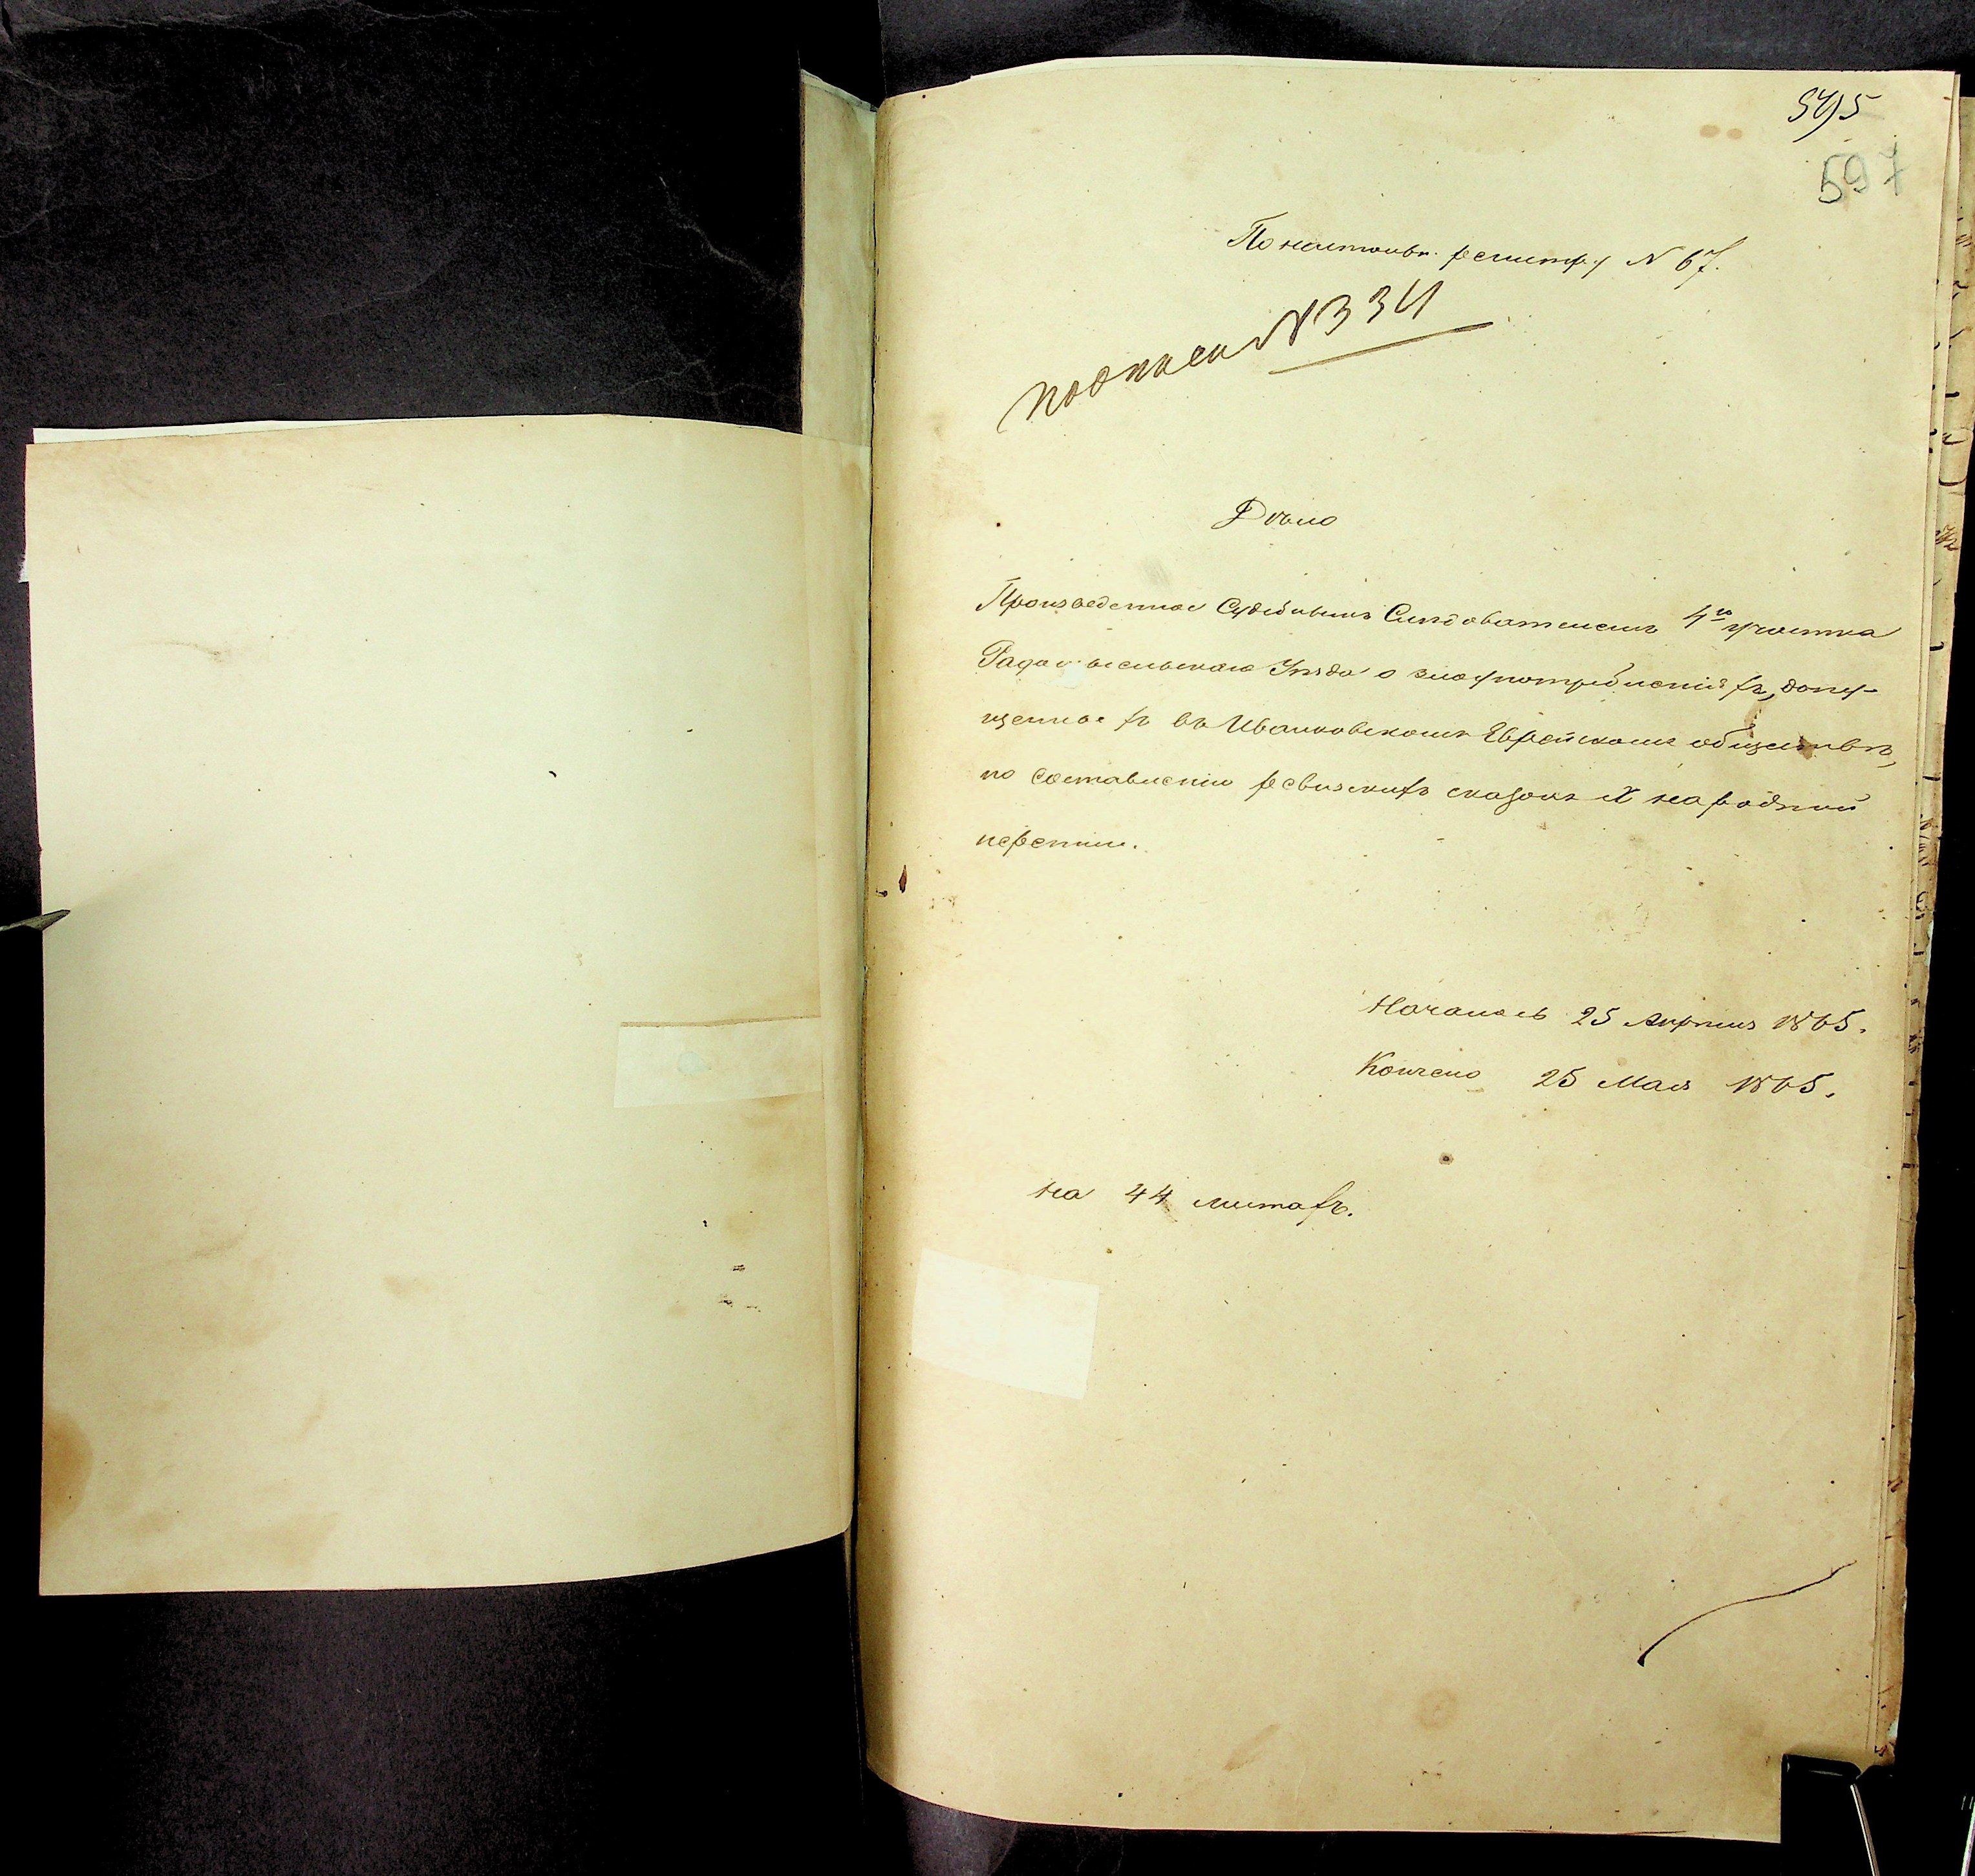 597
По настольн. регистру № 67.
№ 334
Дѣло
Произведенное Судебнымъ Слѣдователемъ 4го участка
Радомысльскаго Уѣзда о злоупотребленіяхъ, допу-
щенныхъ въ Иванковскомъ Еврейскомъ обществѣ,
по составленію ревизскихъ сказокъ X народной
переписи.
Началось 25 Апрѣля 1865.
Кончено 25 Мая 1865.
на 44 листахъ.